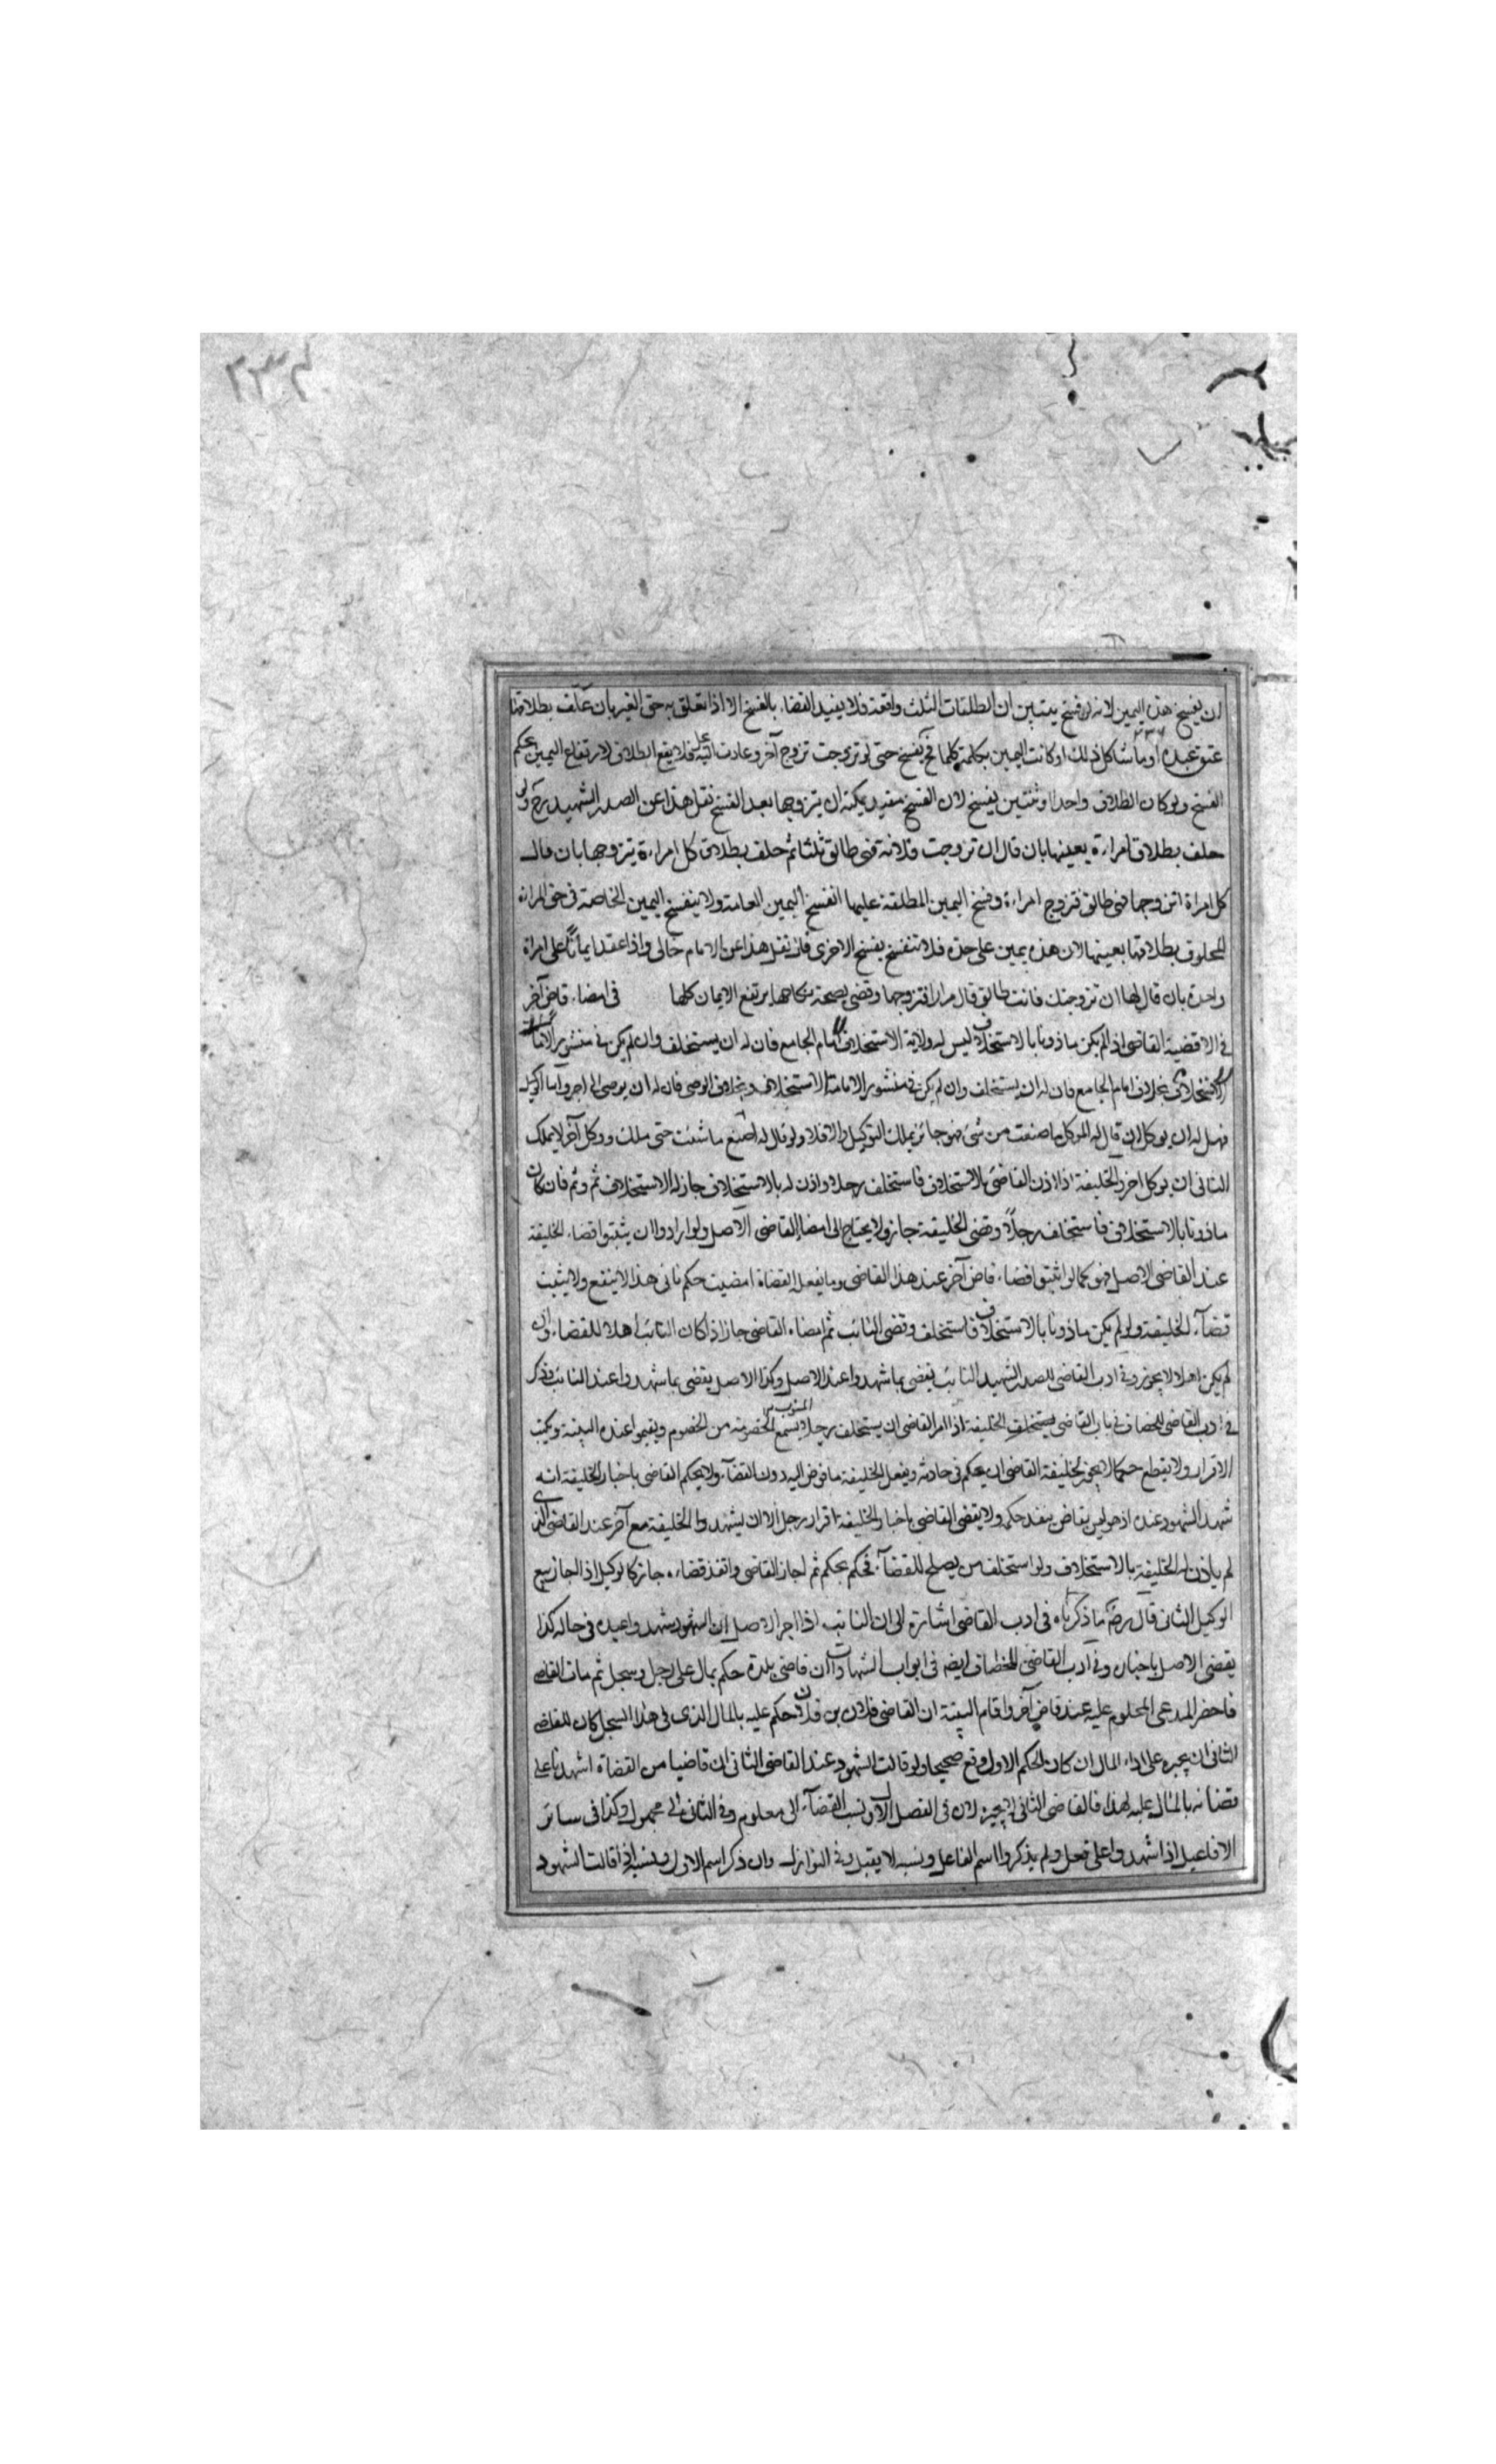 ٢٣٤
ان يفسخ هذه اليمين لانه لو فسخ يتبين ان الطلقات الثلث واقعة فلا يفيد القضاء بالفسخ الا اذا تعلق به حق الغير بان علق بطلاقها
عتق عبده او ما شاكل ذلك او كانت اليمين بكلمة كلما فح يفسخ حتى لو تزوجت تزوج آخر وعادت اليه فلا يقع الطلاق لارتفاع اليمين بحكم
الفسخ ولو كان الطلاق واحدا او ثنتين يفسخ لان الفسخ مفيد يمكنه ان يتزوجها بعد الفسخ نقل هذا عن الصدر الشهيد رح ولو
حلف بطلاق امراءة بعينها بان قال ان تزوجت فلانة فهى طالق ثلثا ثم حلف بطلاق كل امراءة يتزوجها بان قال
كل امراة اتزوجها فهى طالق فتزوج امراءة وفسخ اليمين المطلقة عليها انفسخ اليمين العامة ولا ينفسخ اليمين الخاصة فى حق المراة
المحلوف بطلاقها بعينها لان هذه يمين على حدة فلا تنفسخ بفسخ الاخرى نقل هذا عن الامام خالى واذا عقد ايمانا على امراة
واحدة بان قال لها ان تزوجتك فانت طالق قال مرارا فتزوجها وقضى بصحة نكاحها يرتفع الايمان كلها فى امضاء قاض آخر
فى الاقضية القاضى اذا لم يكن ماذونا بالاستخلاف ليس له ولاية الاستخلاف امام الجامع فان له ان يستخلف وان لم يكن فى منشور الامامة
الاستخلاف بخلاف امام الجامع فان له ان يستخلف وان لم يكن فى منشور الامامة الاستخلاف وبخلاف الوصى فان له ان يوصى الى اخر واما الوكيل
فهل له ان يوكل ان قال له الموكل ما صنعت من شئ فهو جائز يملك التوكيل والا فلا ولو قال له اصنع ما شئت حتى ملك ووكل آخر لا يملك
الثانى ان يوكل اخر والخليفة اذا اذن القاضى بالاستخلاف فاستخلف رجلا واذن له بالاستخلاف جاز له الاستخلاف ثم وثم فان كان
ماذونا بالاستخلاف فاستخلف رجلاً وقضى الخليفة جاز ولا يحتاج الى امضاء القاضى الاصل ولو ارادوا ان يثبتوا قضاء الخليفة
عند القاضى الاصل فهو كما لو اثبتوا قضاء قاض آخر عند هذا القاضى وما يفعله القضاة امضيت حكم نائبى هذا لا ينفع ولا يثبت
قضاء الخليفة ولو لم يكن ماذونا بالاستخلاف فاستخلف وقضى النائب ثم امضاه القاضى جاز اذا كان النائب اهلا للقضاء وان
لم يكن اهلا لا يجوز وفى ادب القاضى للصدر الشهيد النائب يقضى بما شهدوا عند الاصل وكذا الاصل يقضى بما شهدوا عند النائب وذكر
فى ادب القاضى للخصاف فى باب القاضى يستخلف الخليفة اذا امر القاضى ان يستخلف رجلا يسمع الخصومة من الخصوم ويقيموا عنده البينة ويكتب
الاقرار ولا يقطع حكما لا يجوز لخليفة القاضى ان يحكم فى حادثة ويفعل الخليفة ما فوض اليه دون القضاء ولا يحكم القاضى باخبار الخليفة انه
شهد الشهود عنده اذ هو ليس بقاض ينفذ حكمه ولا يقضى القاضى باخبار الخليفة اقرار رجل الا ان يشهد والخليفة مع آخر عند القاضى الذى
لم ياذن له الخليفة بالاستخلاف ولو استخلف من يصلح للقضاء فحكم بحكم ثم اجاز القاضى وانفذ قضاءه جاز كالوكيل اذا اجاز بيع
الوكيل الثانى قال رض ما ذكرناه فى ادب القاضى اشارة الى ان النائب اذا اخبر الاصل ان الشهود شهدوا عنده فى حاله كذا
يقضى الاصل باخباره وفى ادب القاضى للخصاف ايضه فى ابواب الشهادات ان قاضى بلدة حكم بمال على رجل وسجل ثم مات القاضى
فاحضر المدعى المحكوم عليه عند قاض آخر واقام البينة ان القاضى فلان بن فلان حكم عليه بالمال الذى فى هذا السجل كان للقاضى
الثانى ان يجبره على اداء المال ان كان الحكم الاول وقع صحيحا ولو قالت الشهود عند القاضى الثانى ان قاضيا من القضاة اشهدنا على
قضائه بالمال عليه لهذا فالقاضى الثانى لا يجيزه لان فى الفصل الاول نسب القضاء الى معلوم وفى الثانى الى مجهول وكذا فى سائر
الافاعيل اذا شهدوا على فعل ولم يذكروا اسم الفاعل ونسبه لا يقبل وفى النوازل وان ذكر اسم الاول ونسبه اذا قالت الشهود